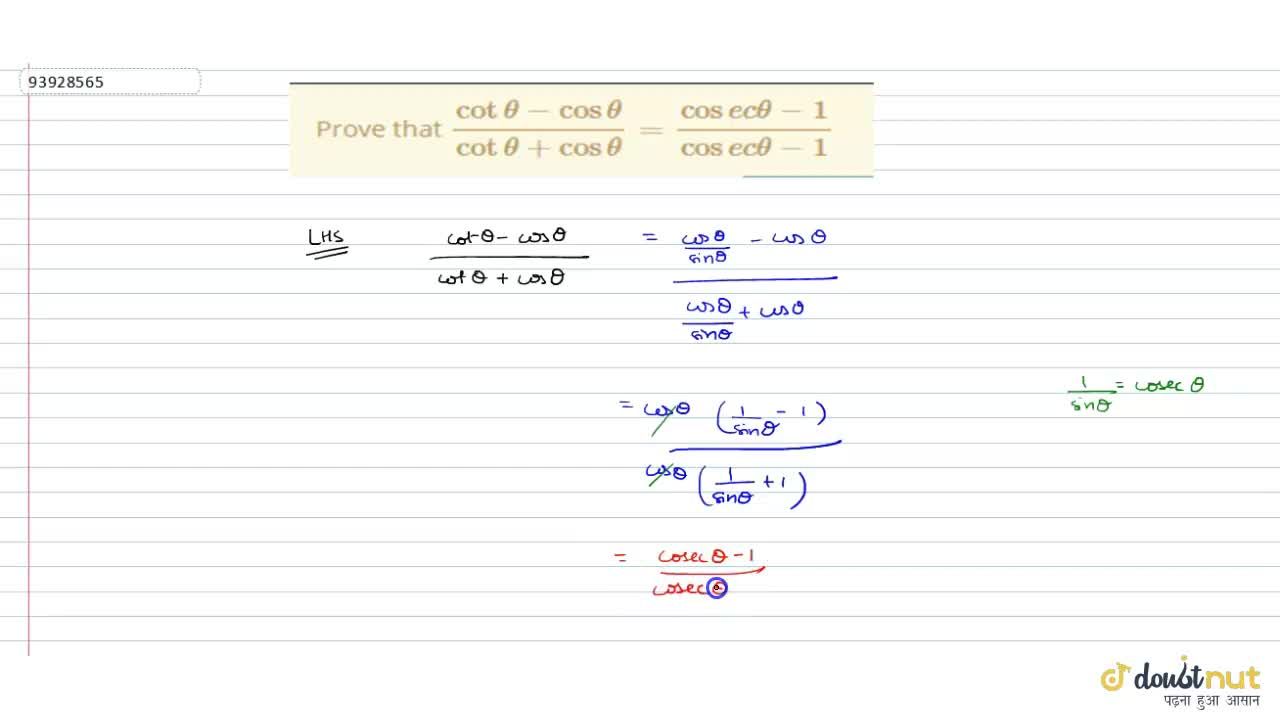 93928565
Prove that (cot θ − cos θ)/(cot θ + cos θ) = (cos ecθ − 1)/(cos ecθ − 1)
LHS (cot θ - cos θ)/(cot θ + cos θ) = (cos θ/sin θ - cos θ)/(cos θ/sin θ + cos θ)
= cos θ (1/sin θ - 1)/cos θ (1/sin θ + 1)
1/sin θ = cosec θ
= (cosec θ - 1)/cosec
doubtnut
पढ़ना हुआ आसान